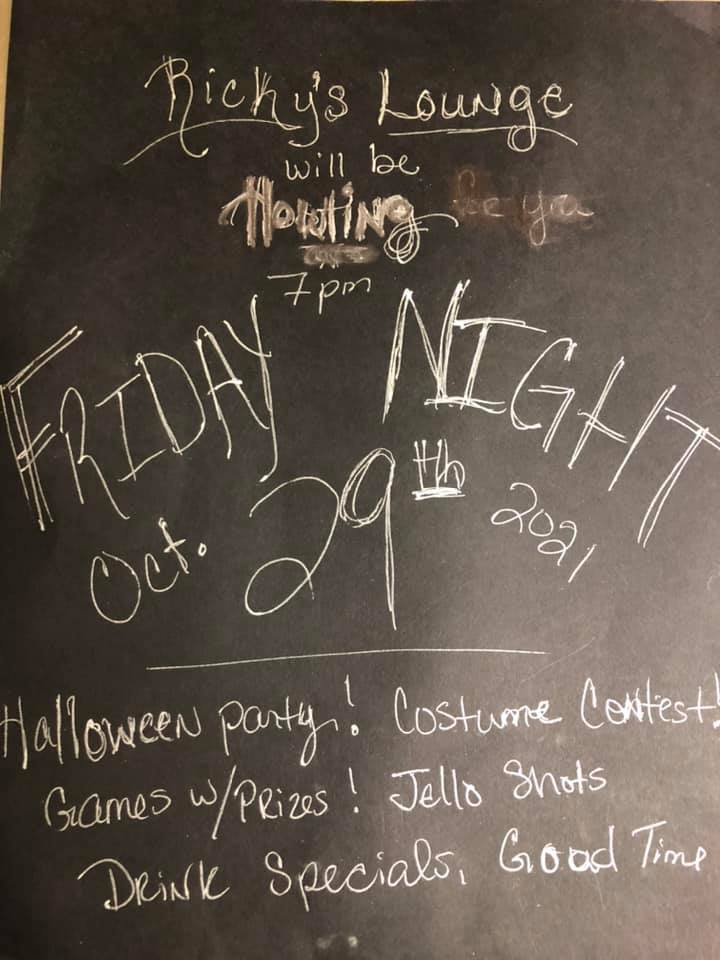 Ricky's Lounge
will be
7pm
FRIDAY NIGHT
Oct. 29th 2021
Halloween party! Costume Contest!
Games w/Prizes! Jello Shots
Drink Specials, Good Time